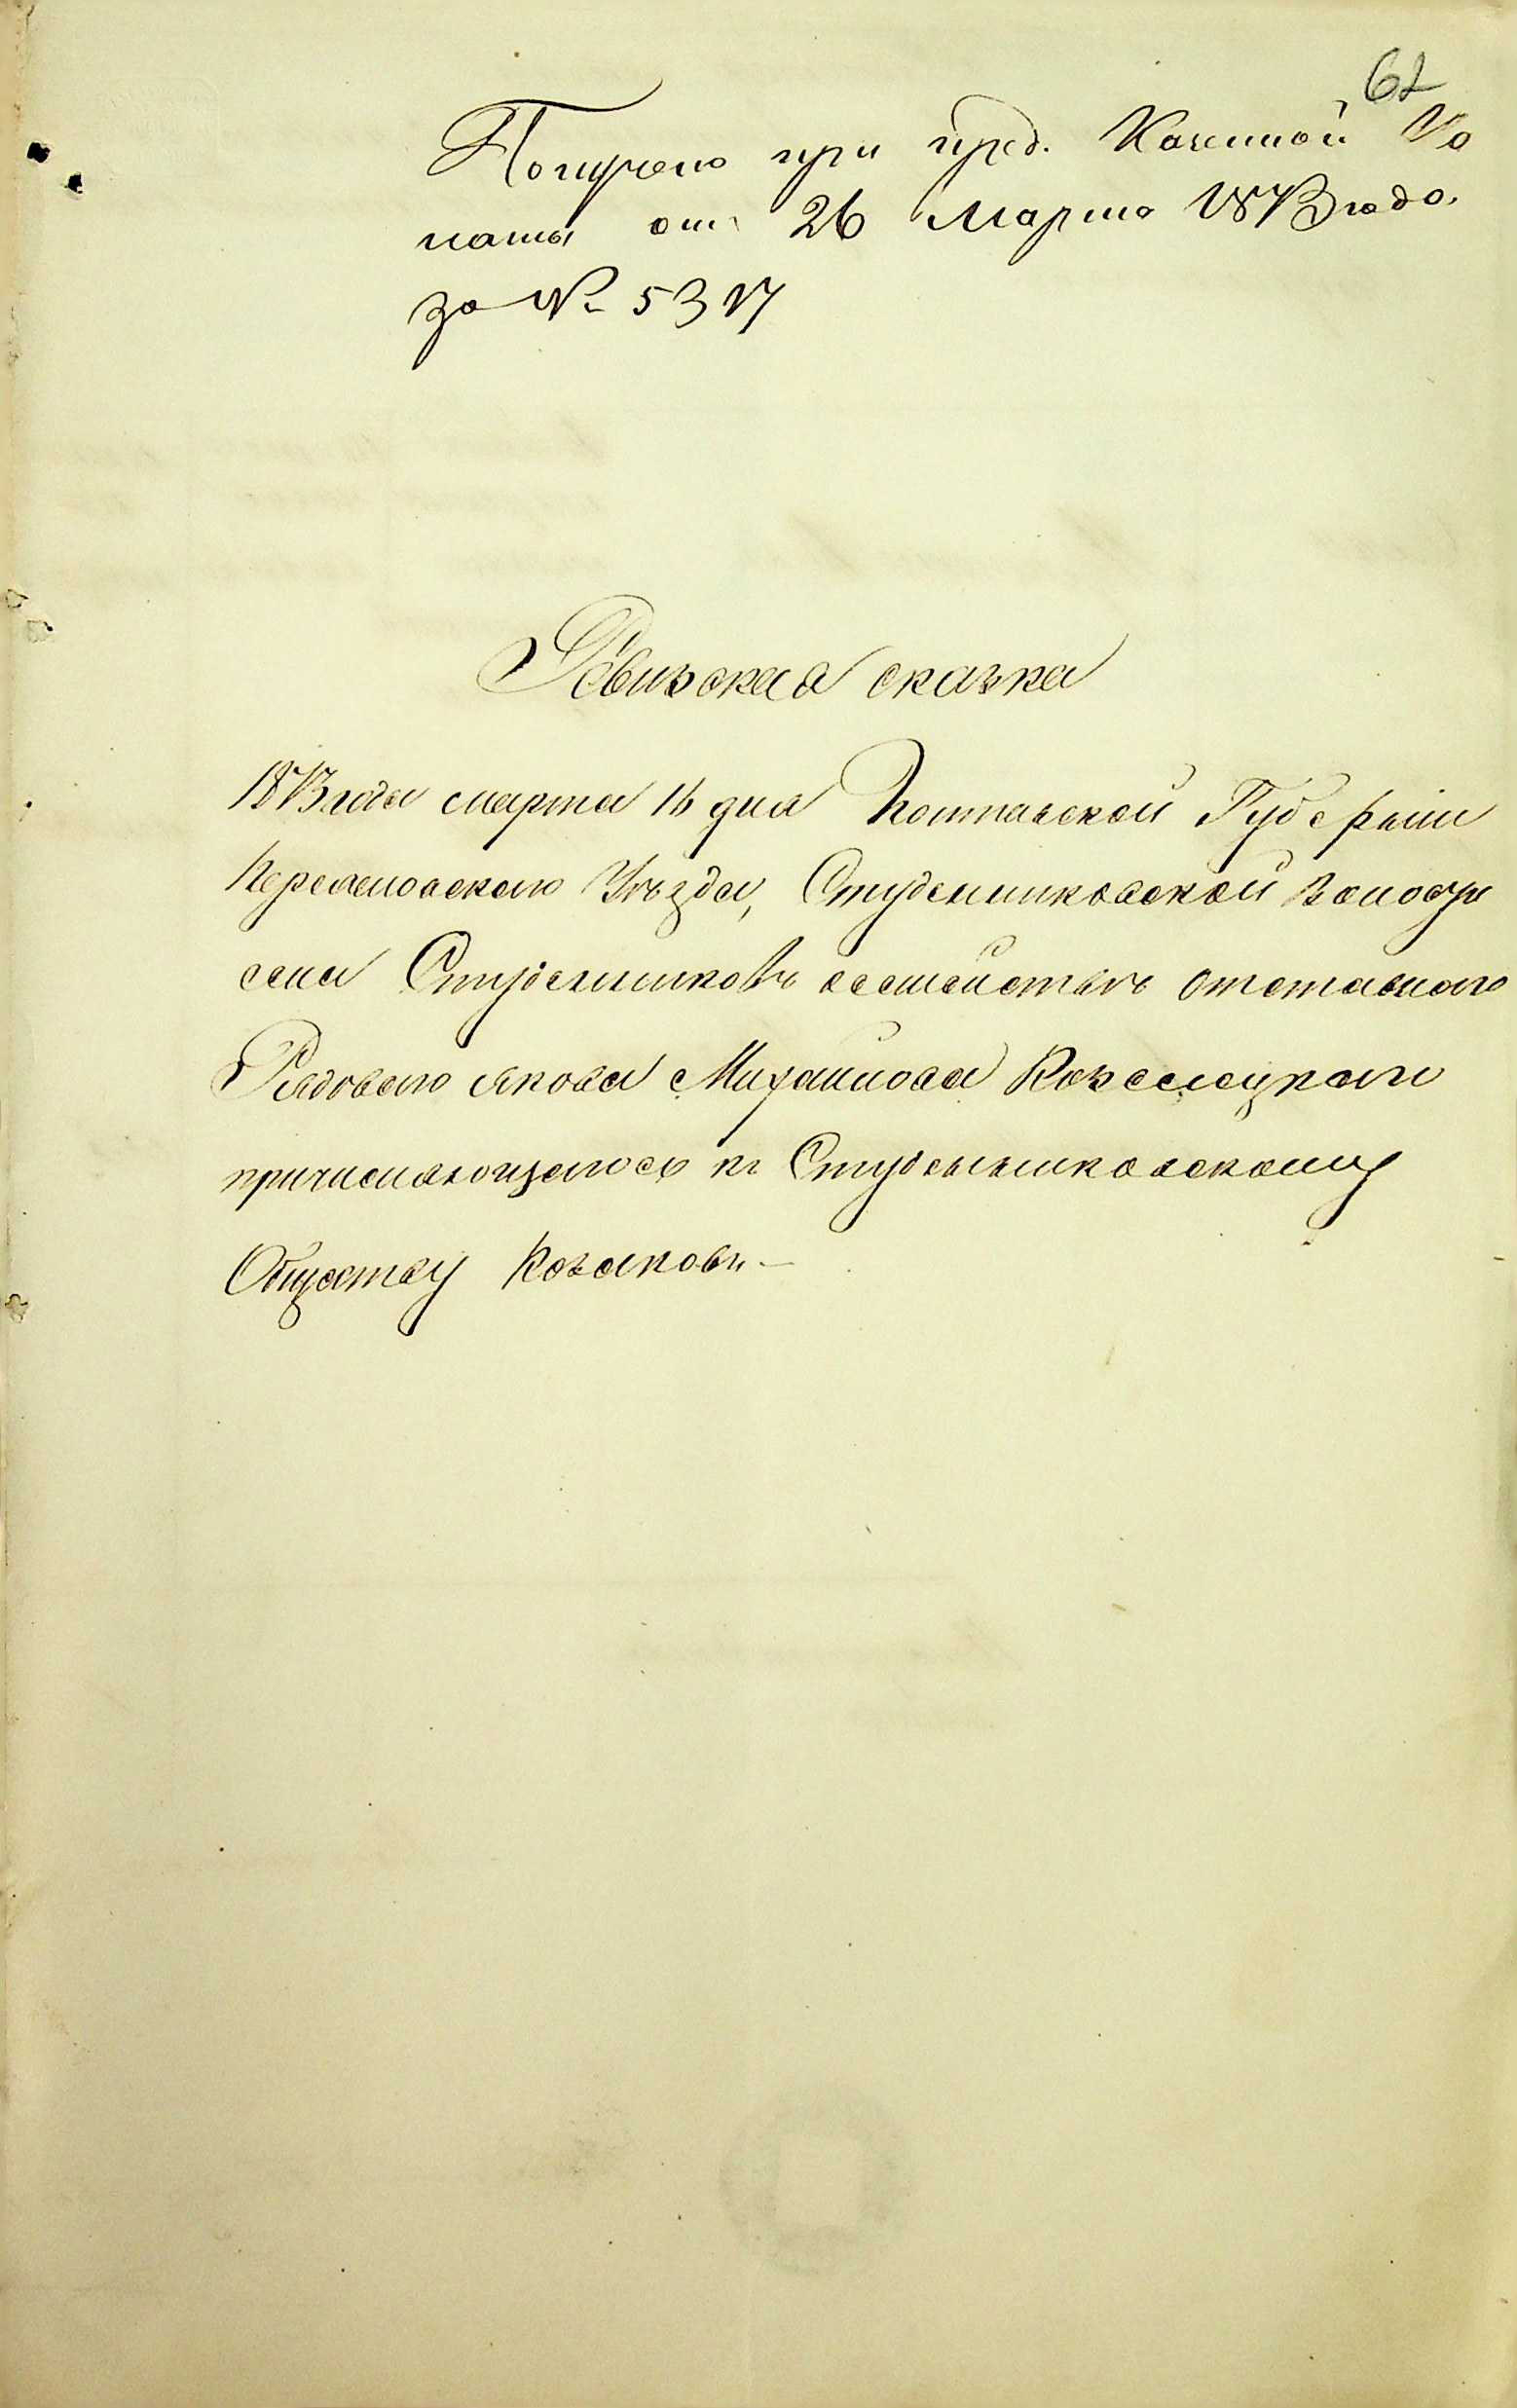 62
Получено при пред. Казенной Па
латы от 26 Марта 1873 года.
за № 5317
Ревизская сказка
1873 года марта 16 дня Полтавской Губерніи
Переяславского Уѣзда, Студениковской волости
села Студениковъ о семействѣ отставнаго
Рядового Якова Михайлова
причисляющегося къ Студениковскому
Обществу Козаковъ. —